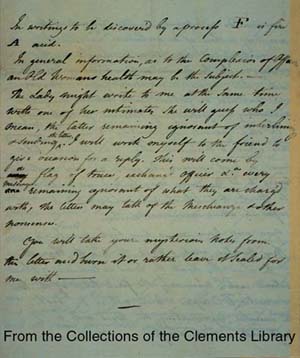 In writings to be discovered by a process F is fire
A acid.
In general information, as to the complexion of Affairs
an Old Womans health may be the subject.—
The Lady might write to me at the same time
with one of her intimates she will guess who I
mean, the latter remaining ignorant of interlining
& sending the letter. I will write myself to the friend to
give occasion for a reply. This will come by
a flag of truce, exchang'd officer &c every
messenger remaining ignorant of what they are charged
with, the letters may talk of the Meschianza & other
nonsense.
will take your mysterious notes from
this letter and burn it or rather leave it sealed for
me with —
From the Collections of the Clements Library